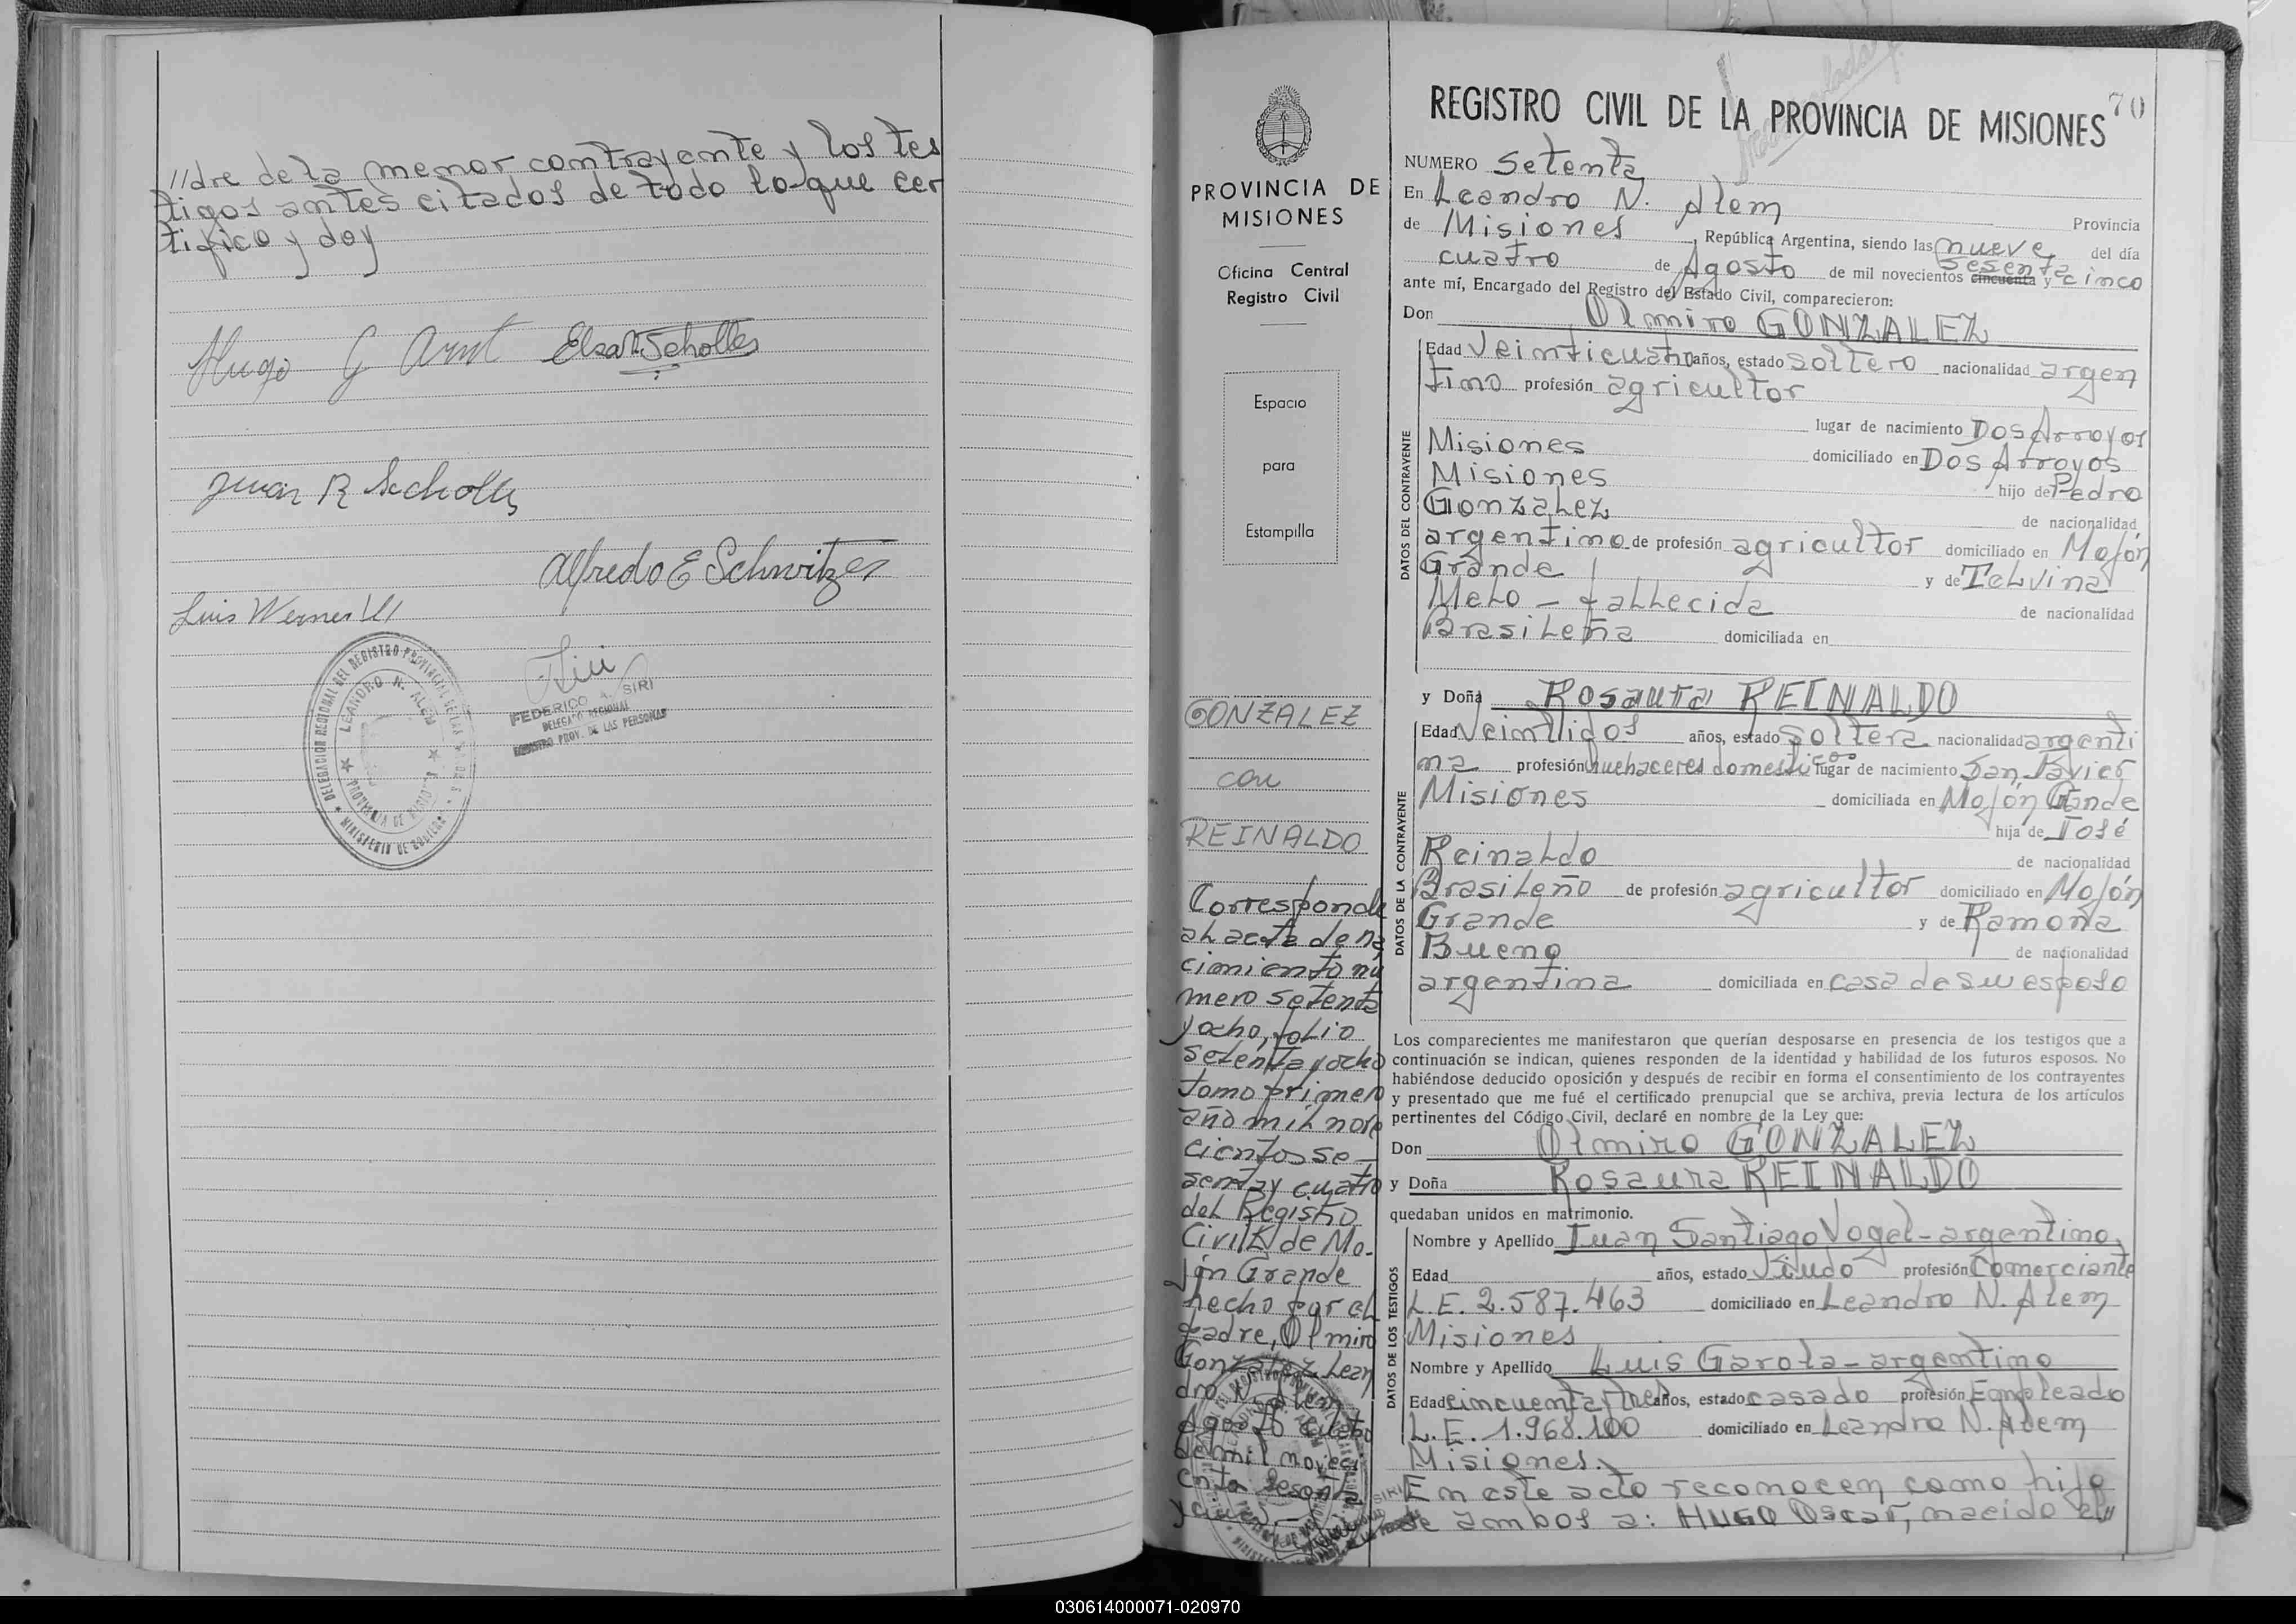 //dre de la menor contrayente y los tes
tigos antes citados de todo lo que cer
tifico y doy
Hugo G Arnt Elsa Scholles
Juan R Scholles
Alfredo E Schwitzer
Luis Werner
DELEGACION REGIONAL DEL REGISTRO PROVINCIAL DE LAS
LEANDRO N. ALEM
PROVINCIA DE
MINISTERIO DE GOBIERNO
FEDERICO A. SIRI
DELEGADO REGIONAL
REGISTRO PROV. DE LAS PERSONAS
PROVINCIA DE
MISIONES
Oficina Central
Registro Civil
Espacio
para
Estampilla
GONZALEZ
con
REINALDO
Corresponde
al acta de na
cimiento nú
mero setenta
y ocho, folio
setenta y ocho
tomo primero
año mil nove
cientos se
senta y cuatro
del Registro
Civil de Mo-
jón Grande
hecho por el
padre, Olmiro
Gonzalez Lean
dro N. Alem
agosto cuatro
de mil noveci
ento sesenta
y cinco.-
70
REGISTRO CIVIL DE LA PROVINCIA DE MISIONES
NUMERO Setenta
En Leandro N. Alem Provincia
de Misiones, República Argentina, siendo las nueve del día
cuatro de Agosto de mil novecientos cincuenta sesenta y cinco
ante mí, Encargado del Registro del Estado Civil, comparecieron:
Don Olmiro GONZALEZ
DATOS DEL CONTRAYENTE
Edad Veinticuatro años, estado soltero nacionalidad argen
tino profesión agricultor
lugar de nacimiento Dos Arroyos
Misiones domiciliado en Dos Arroyos
Misiones hijo de Pedro
Gonzalez de nacionalidad
argentino de profesión agricultor domiciliado en Mojón
Grande y de Telvina
Melo - fallecida de nacionalidad
Brasileña domiciliada en
y Doña Rosaura REINALDO
DATOS DE LA CONTRAYENTE
Edad Veintidos años, estado soltera nacionalidad argenti
na profesión quehaceres domesticos lugar de nacimiento San Javier
Misiones domiciliada en Mojón Grande
hija de José
Reinaldo de nacionalidad
Brasileño de profesión agricultor domiciliado en Mojón
Grande y de Ramona
Bueno de nacionalidad
argentina domiciliada en casa de su esposo
Los comparecientes me manifestaron que querían desposarse en presencia de los testigos que a
continuación se indican, quienes responden de la identidad y habilidad de los futuros esposos. No
habiéndose deducido oposición y después de recibir en forma el consentimiento de los contrayentes
y presentado que me fué el certificado prenupcial que se archiva, previa lectura de los artículos
pertinentes del Código Civil, declaré en nombre de la Ley que:
Don Olmiro GONZALEZ
y Doña Rosaura REINALDO
quedaban unidos en matrimonio.
DATOS DE LOS TESTIGOS
Nombre y Apellido Juan Santiago Vogel - argentino,
Edad años, estado Viudo profesión Comerciante
L.E. 2.587.463 domiciliado en Leandro N. Alem
Misiones
Nombre y Apellido Luis Garola - argentino
Edad cincuenta y tres años, estado casado profesión Empleado
L.E. 1.968.100 domiciliado en Leandro N. Alem
Misiones.
En este acto reconocen como hijo
de ambos a: HUGO Oscar, nacido el//
030614000071-020970